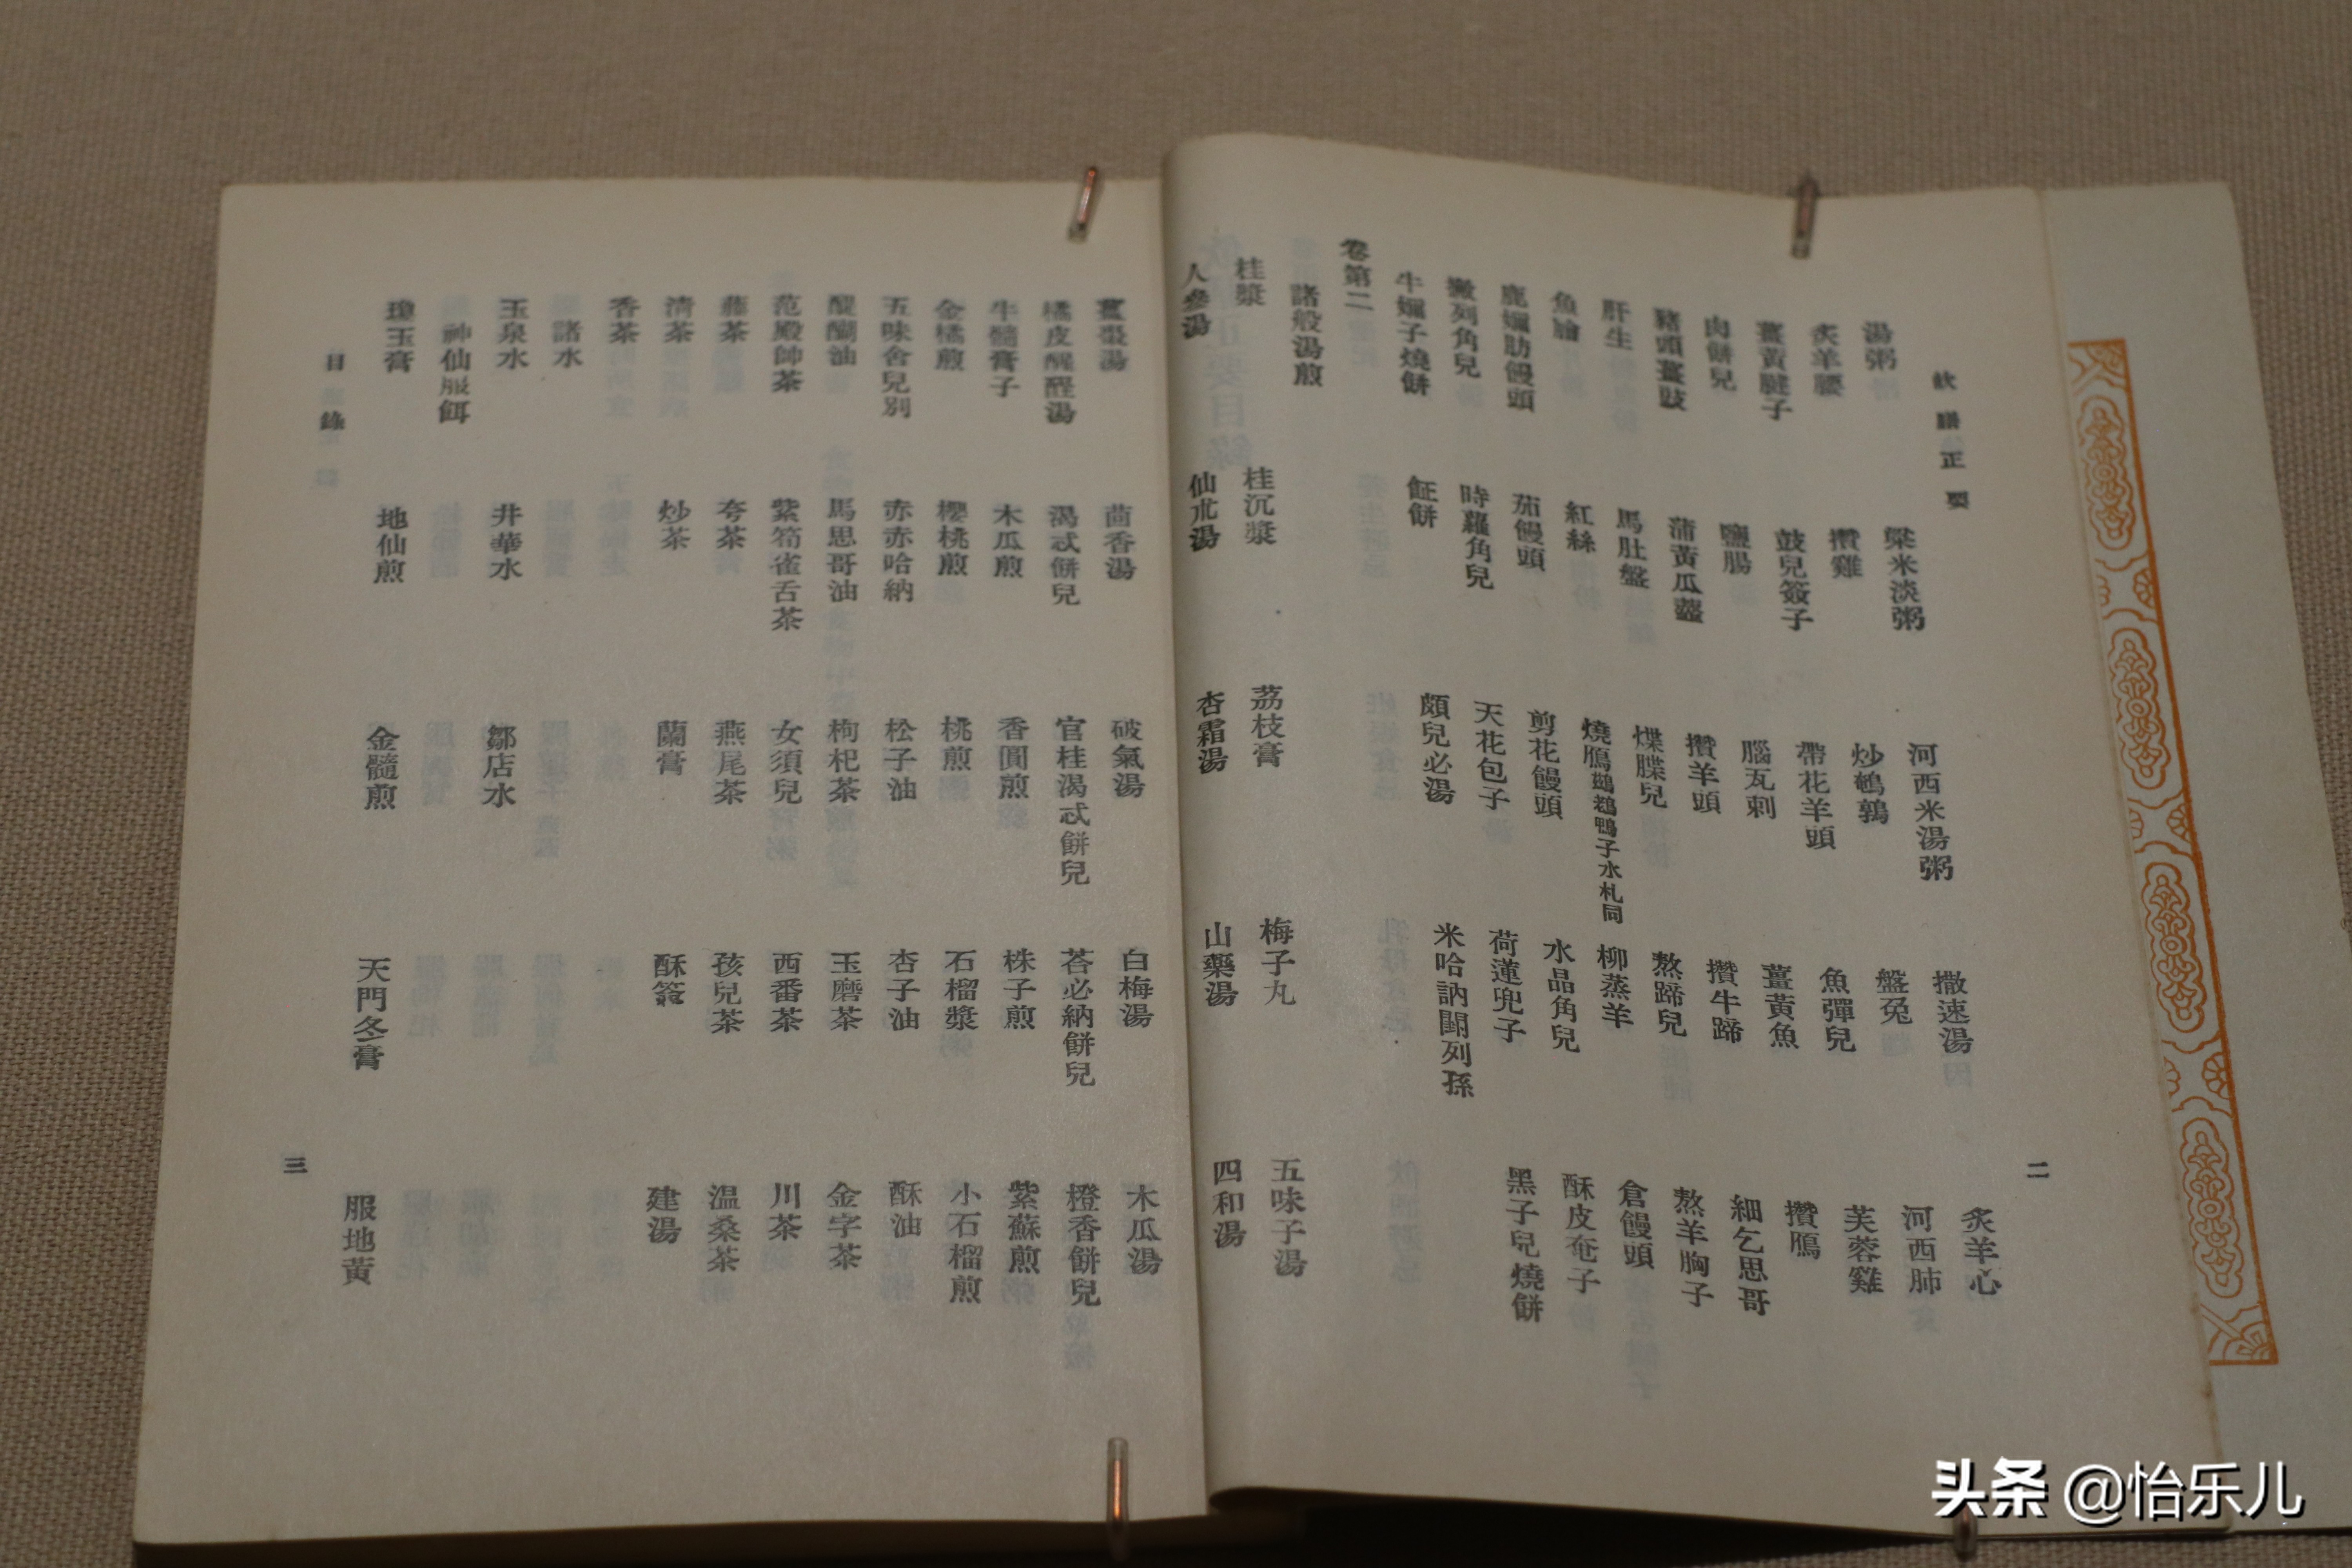 飲膳正要
二
湯粥 粱米淡粥 河西米湯粥 撒速湯 炙羊心
炙羊腰 攢雞 炒鵪鶉 盤兔 河西肺
薑黃腱子 鼓兒簽子 帶花羊頭 魚彈兒 芙蓉雞
肉餅兒 鹽腸 腦瓦刺 薑黃魚 攢鴈
豬頭薑豉 蒲黃瓜虀 攢羊頭 攢牛蹄 細乞思哥
肝生 馬肚盤 煠䐑兒 熬蹄兒 熬羊胸子
魚膾 紅絲 燒鴈鷀鶿鴨子水札同 柳蒸羊 倉饅頭
鹿嬭肪饅頭 茄饅頭 剪花饅頭 水晶角兒 酥皮奄子
撇列角兒 時蘿角兒 天花包子 荷蓮兜子 黑子兒燒餅
牛嬭子燒餅 䬣餅 頗兒必湯 米哈訥關列孫
卷第二
諸般湯煎
桂漿 桂沉漿 荔枝膏 梅子丸 五味子湯
人參湯 仙朮湯 杏霜湯 山藥湯 四和湯
薑棗湯 茴香湯 破氣湯 白梅湯 木瓜湯
橘皮醒酲湯 渴忒餅兒 官桂渴忒餅兒 荅必納餅兒 橙香餅兒
牛髓膏子 木瓜煎 香圓煎 株子煎 紫蘇煎
金橘煎 櫻桃煎 桃煎 石榴漿 小石榴煎
五味舍兒別 赤赤哈納 松子油 杏子油 酥油
醍醐油 馬思哥油 枸杞茶 玉磨茶 金字茶
范殿帥茶 紫筍雀舌茶 女須兒 西番茶 川茶
藤茶 夸茶 燕尾茶 孩兒茶 温桑茶
清茶 炒茶 蘭膏 酥簽 建湯
香茶
諸水
玉泉水 井華水 鄒店水
神仙服餌
瓊玉膏 地仙煎 金髓煎 天門冬膏 服地黃
目錄
三
头条 @怡乐儿